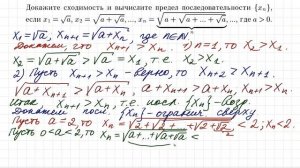 Докажите сходимость и вычислите предел последовательности {xₙ},
если x₁ = √a, x₂ = √(a+√a), ..., xₙ = √(a+√(a+...+√a)), ..., где a > 0.
x₁ = √a, xₙ₊₁ = √(a+xₙ), где n∈ℕ
Докажем, что xₙ₊₁ > xₙ. 1) n=1, x₂ > x₁.
x₂ = √(a+√a) > √a = x₁, т.е. x₂ > x₁.
2) Пусть xₙ₊₁ > xₙ - верно, то xₙ₊₂ > xₙ₊₁.
√(a+xₙ₊₁) > √(a+xₙ), a+xₙ₊₁ > a+xₙ, xₙ₊₁ > xₙ.
Итак xₙ₊₁ > xₙ, т.е. посл. {xₙ} -
Докажем посл. {xₙ} - огранич. сверху
Пусть a=2, то xₙ = √(2+√(2+...+√(2+√2))) < 2; xₙ < 2.
Пусть 0<a<2, то xₙ = √(a+...+√(a+√a)) <